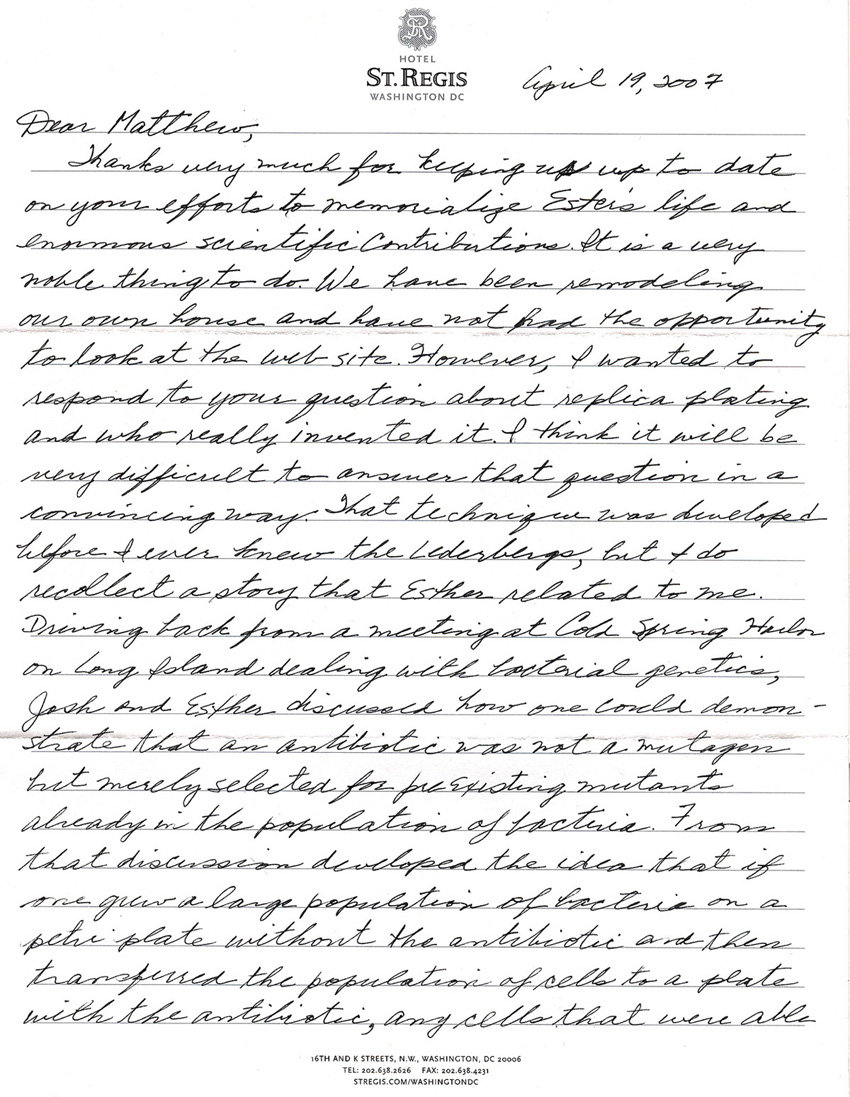 HOTEL
ST. REGIS
WASHINGTON DC
April 19, 2007
Dear Matthew,
Thanks very much for keeping up up to date
on your efforts to memorialize Ester's life and
enormous scientific contributions. It is a very
noble thing to do. We have been remodeling
our own house and have not had the opportunity
to look at the web site. However, I wanted to
respond to your question about replica plating
and who really invented it. I think it will be
very difficult to answer that question in a
convincing way. That technique was developed
before I ever knew the Lederbergs, but I do
recollect a story that Esther related to me.
Driving back from a meeting at Cold Spring Harbor
on Long Island dealing with bacterial genetics,
Josh and Esther discussed how one could demon-
strate that an antibiotic was not a mutagen
but merely selected for preexisting mutants
already in the population of bacteria. From
that discussion developed the idea that if
one grew a large population of bacteria on a
petri plate without the antibiotic and then
transferred the population of cells to a plate
with the antibiotic, any cells that were able
16TH AND K STREETS, N.W., WASHINGTON, DC 20006
TEL: 202.638.2626 FAX: 202.638.4231
STREGIS.COM/WASHINGTONDC